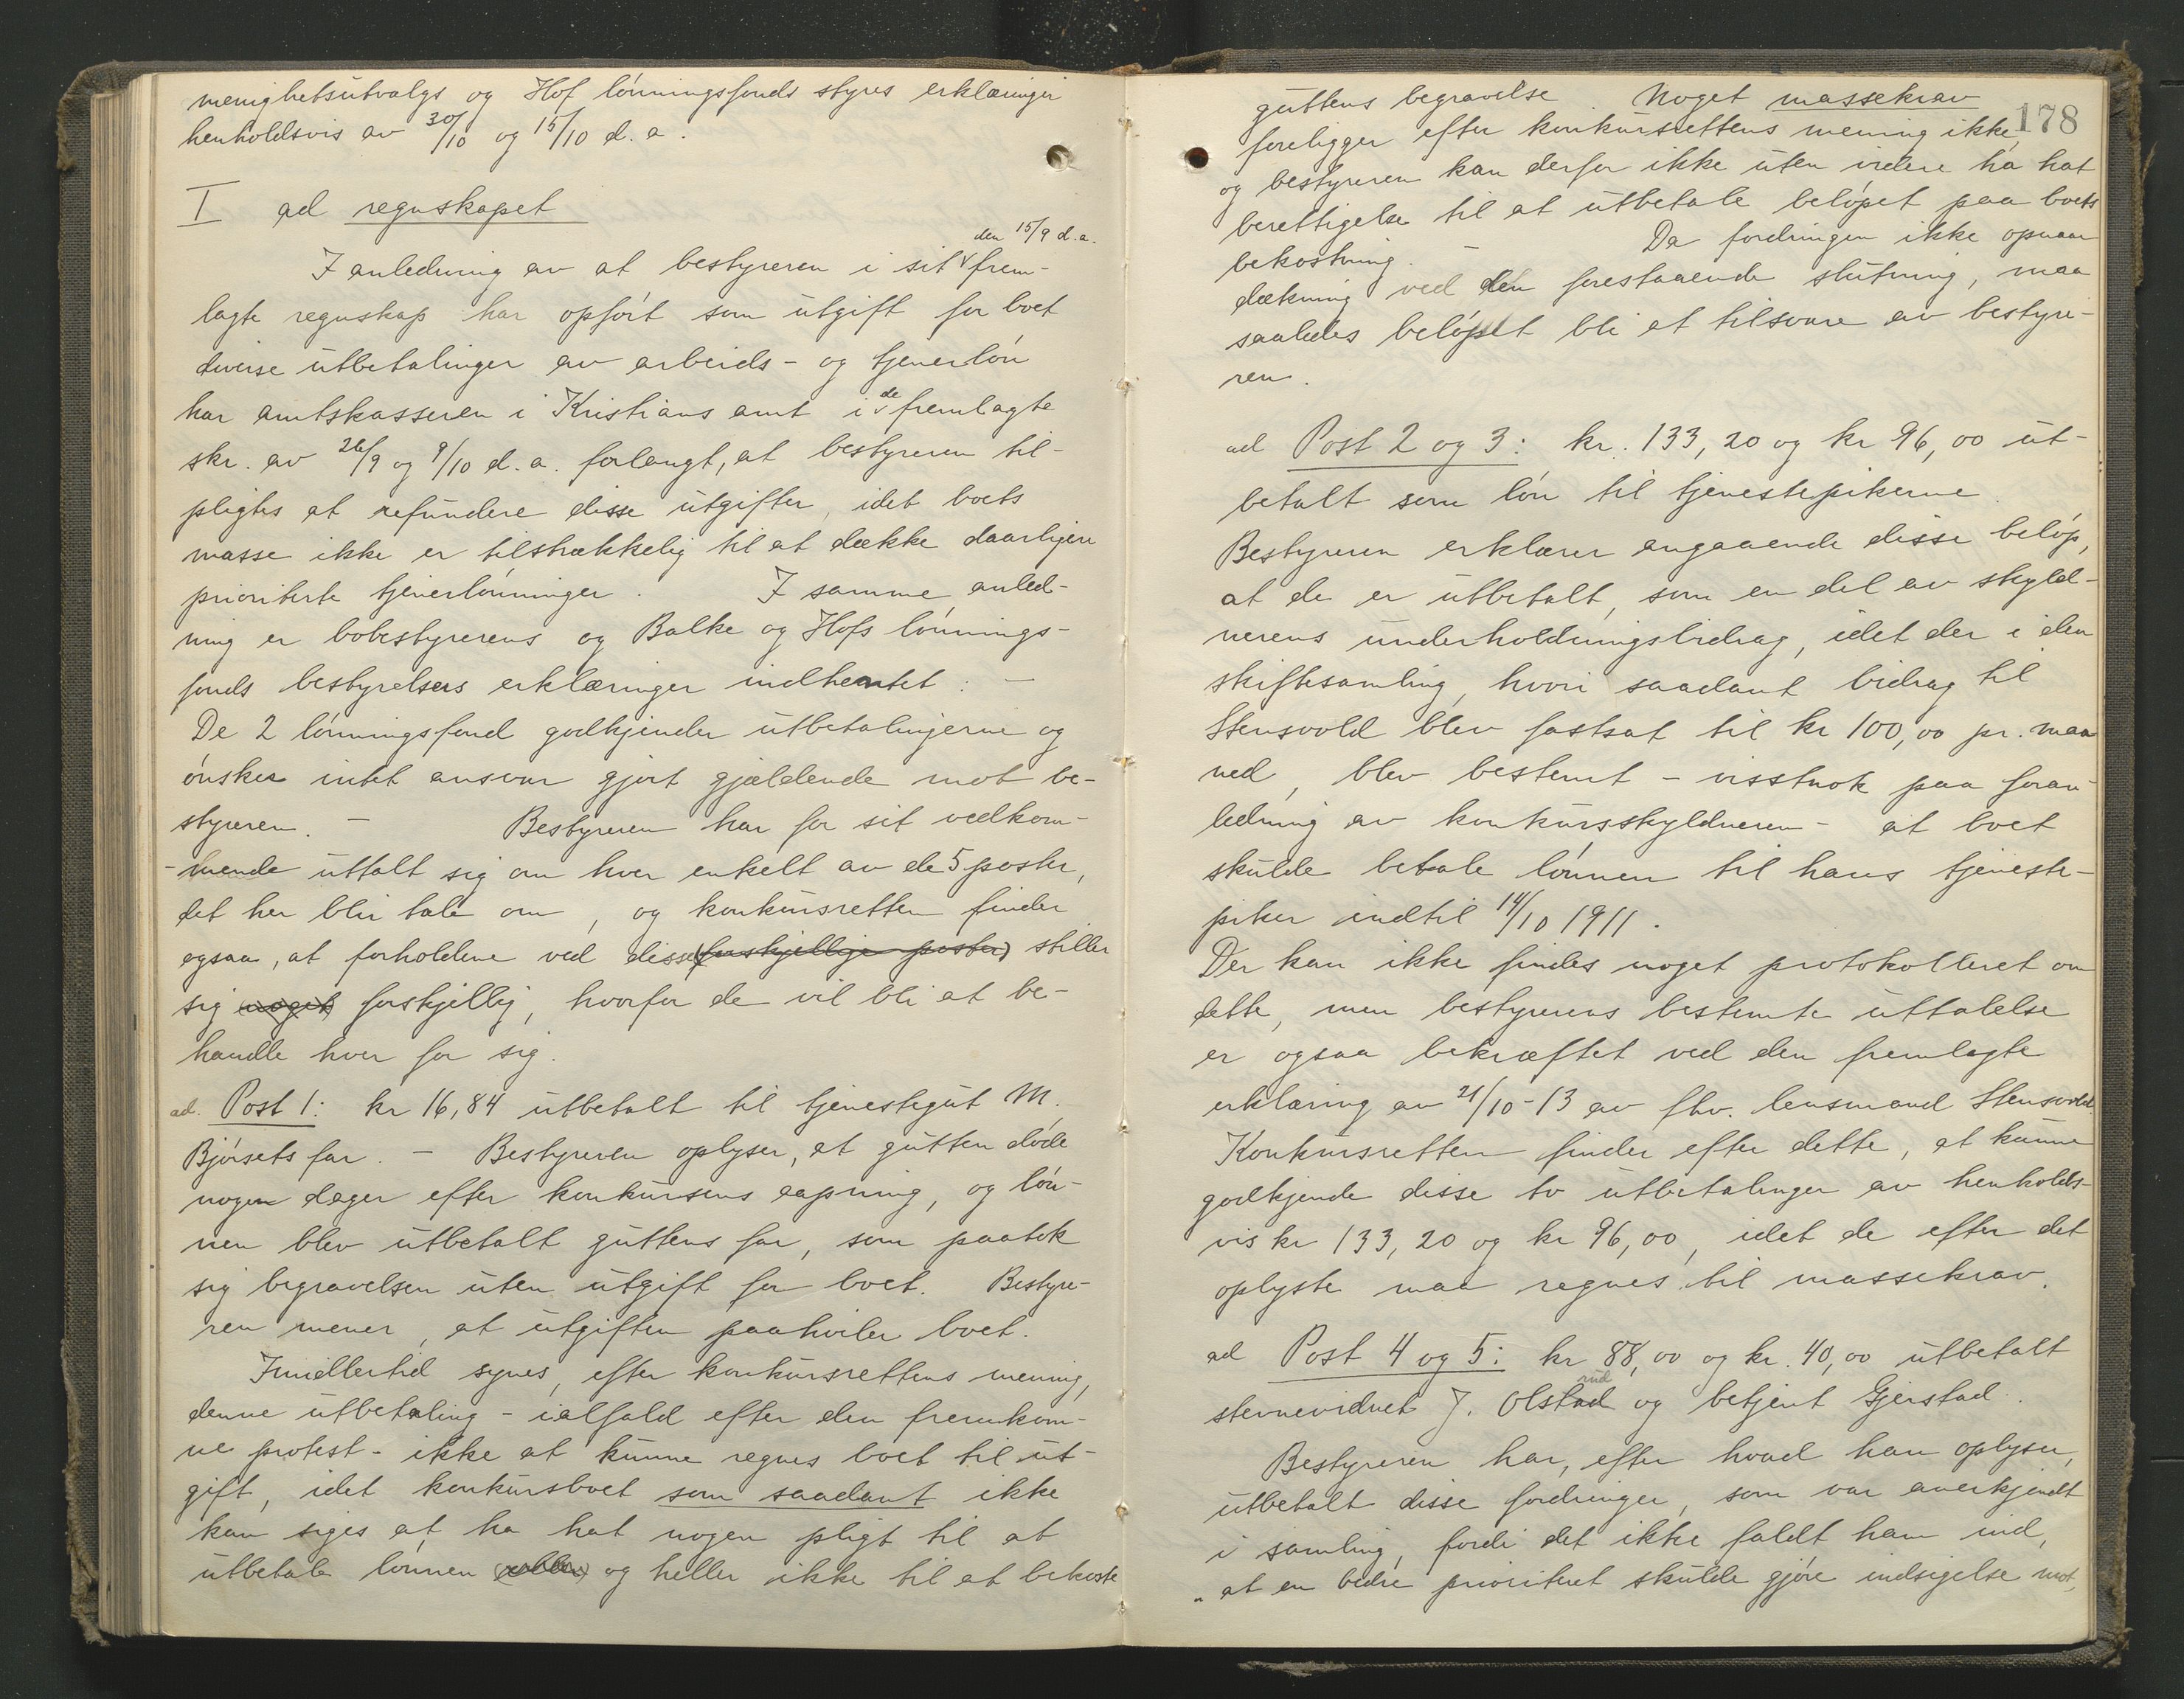 menighetsutvalgs og Hof lønningsfonds styres erklæringer
henholdsvis av 30/10 og 15/10 d. a.
I ad regnskapet
den 15/9 d.a.
I anledning av at bestyreren i sit frem-
lagte regnskap har opført som utgift for boet
diverse utbetalinger av arbeids- og tjenerløn
har amtskasseren i Kristians amt i de fremlagte
skr. av 26/9 og 9/10 d. a. forlangt, at bestyreren til-
pligtes at refundere disse utgifter, idet boets
masse ikke er tilstrækkelig til at dække daarligere
prioriterte tjenerlønninger. I samme anled-
ning er bobestyrerens og Balke og Hofs lønnings-
fonds bestyrelsers erklæringer indhentet: -
De 2 lønningsfond godkjender utbetalingerne og
ønsker intet ansvar gjort gjældende mot be-
styreren. - Bestyreren har for sit vedkom-
-mende uttalt sig om hver enkelt av de 5 poster,
det her blir tale om, og konkursretten finder
ogsaa, at forholdene ved disse (forskjellige poster) stiller
sig (noget) forskjellig, hvorfor de vil bli at be-
handle hver for sig.
ad. Post 1: kr 16,84 utbetalt til tjenestegut M.
Bjørsets far. - Bestyreren oplyser, at gutten døde
nogen dager efter konkursens aapning, og løn-
nen blev utbetalt guttens far, som paatok
sig begravelsen uten utgift for boet. Bestyre-
ren mener, at utgiften paahviler boet.
Imidlertid synes, efter konkursrettens mening,
denne utbetaling - ialfald efter den fremkom-
ne protest - ikke at kunne regnes boet til ut-
gift, idet konkursboet som saadant ikke
kan siges at ha hat nogen pligt til at
utbetale lønnen og heller ikke til at bekoste
178
guttens begravelse. Noget massekrav
foreligger efter konkursrettens mening ikke,
og bestyreren kan derfor ikke uten videre ha hat
berettigelse til at utbetale beløpet paa boets
bekostning. - Da fordringen ikke opnaar
dækning ved den forestaaende slutning, maa
saaledes beløpet bli et tilsvar av bestyre-
ren.
ad Post 2 og 3: kr. 133,20 og kr 96,00 ut-
betalt som løn til tjenestepikerne.
Bestyreren erklærer angaaende disse beløp,
at de er utbetalt, som en del av skyld-
nerens underholdningsbidrag, idet der i den
skiftesamling, hvori saadant bidrag til
Stensvold blev fastsat til kr 100,00 pr. maa
ned, blev bestemt - visstnok paa foran-
ledning av konkursskyldneren - at boet
skulde betale lønnen til hans tjeneste-
piker indtil 14/10 1911.
Der kan ikke findes noget protokolleret om
dette, men bestyrerens bestemte uttalelse
er ogsaa bekræftet ved den fremlagte
erklæring av 21/10-13 av fhv. lensmand Stensvold
Konkursretten finder efter dette, at kunne
godkjende disse to utbetalinger av henholds-
vis kr 133,20 og kr 96,00, idet de efter det
oplyste maa regnes til massekrav.
ad Post 4 og 5: kr 88,00 og kr. 40,00 utbetalt
rud
stevnevidnet J. Olstad og betjent Gjerstad.
Bestyreren har, efter hvad han oplyser,
utbetalt disse fordringer, som var anerkjendt
i samling, fordi det ikke faldt ham ind,
"at en bedre prioritert skulde gjøre indsigelse mot,